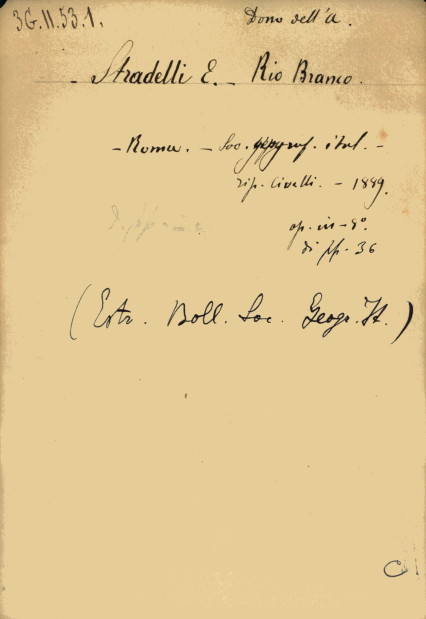 3G.II.53.1. Dono dell'A.
- Stradelli E. - Rio Branco.
- Roma. - Soc. geograf. ital. -
tip. Civelli. - 1889.
op. in-8°.
di pp. 36
(Estr. Boll. Soc. Geogr. It.)